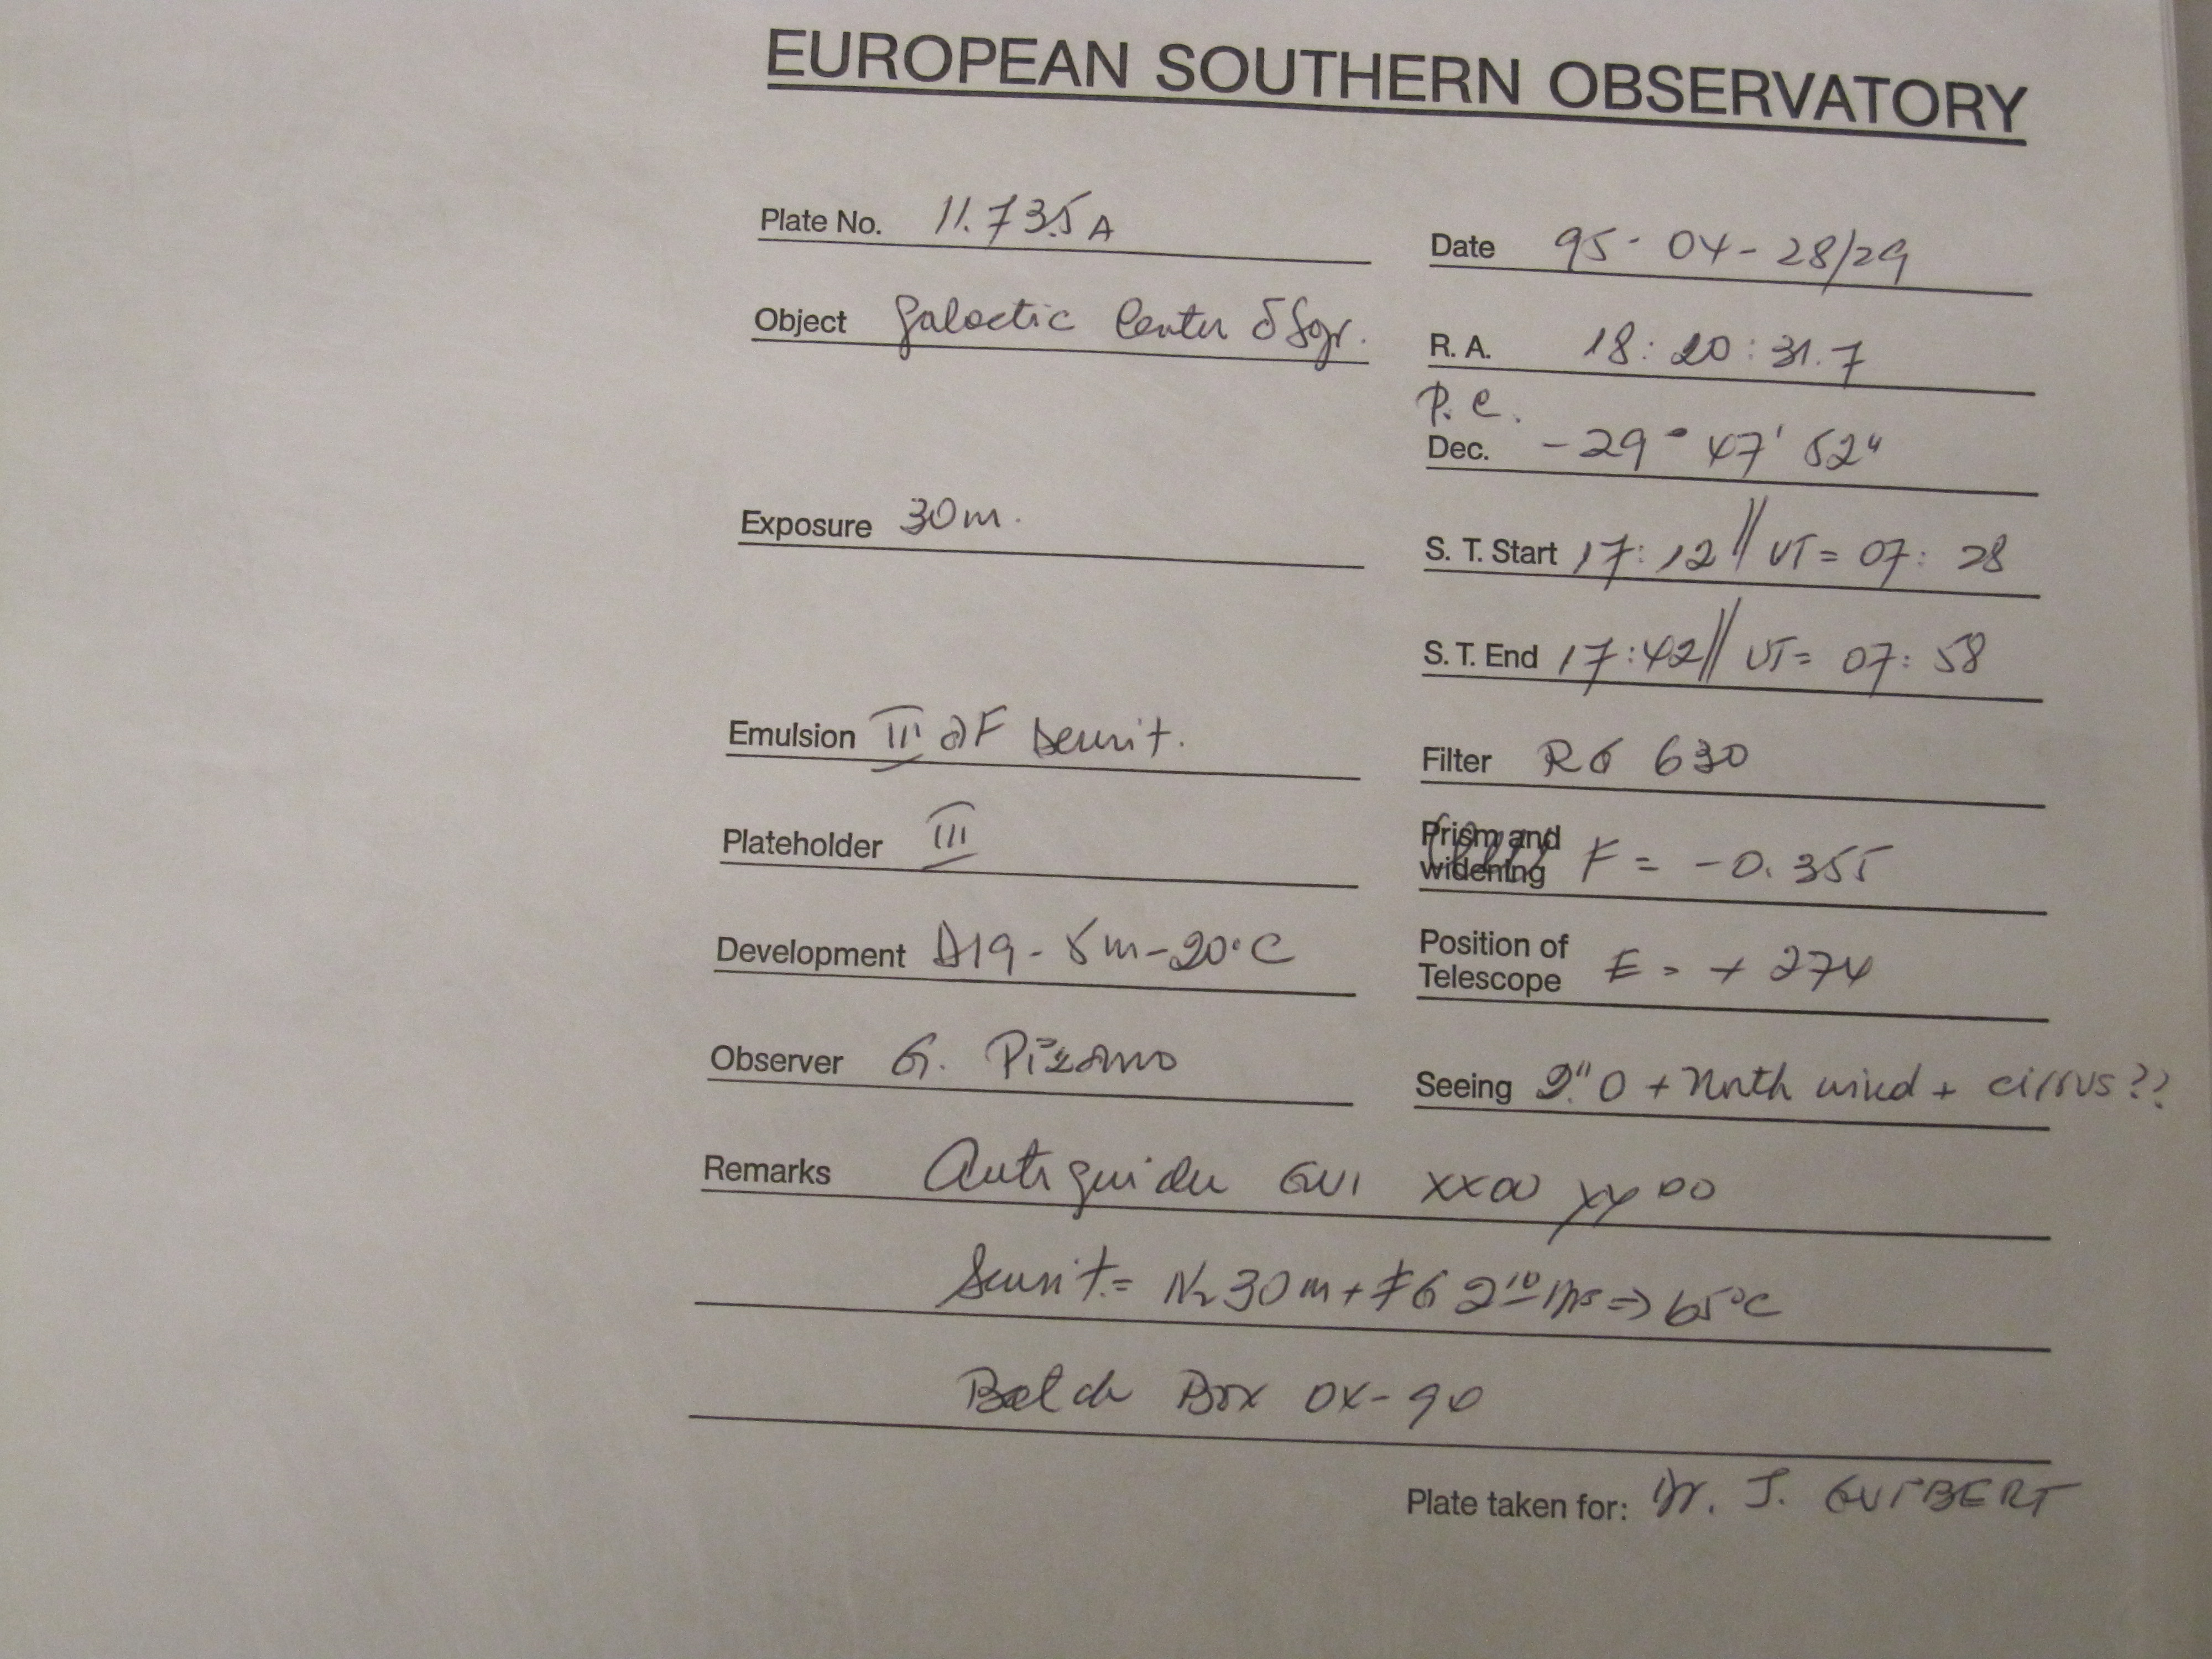 EUROPEAN SOUTHERN OBSERVATORY
Plate No. 11.735A
Date 95-04-28/29
Object Galactic Center δ Sgr.
R. A. 18:20:31.7
P. C.
Dec. -29° 47' 52"
Exposure 30m.
S. T. Start 17:12 // UT = 07:28
S. T. End 17:42 // UT = 07:58
Emulsion III aF Sensit.
Filter RG 630
Plateholder III
Prism and widening F = -0.355
Development D19 - 5m - 20°C
Position of Telescope E = + 274
Observer G. Pizarro
Seeing 2."0 + North wind + cirrus??
Remarks Autoguider GUI XX00 YY00
Sensit. = N2 30m + FG 2 10 hrs => 65°C
Batch Box 0X-90
Plate taken for: Dr. J. GUIBERT